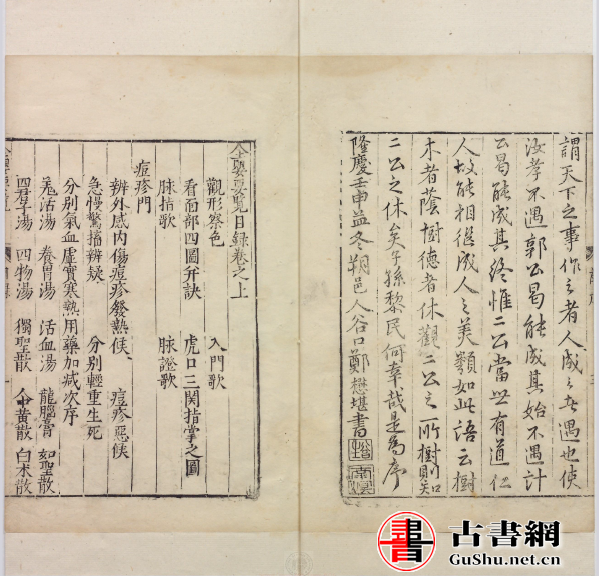 謂天下之事作之者人成之者遇也使
汝孝不遇郭公曷能成其始不遇計
公曷能成其終惟二公當世有道仁
人故能相繼成人之美類如此語云樹
木者蔭樹德者休觀二公之所樹則知
二公之休矣子孫黎民何幸哉是為序
隆慶壬申孟冬朔邑人谷口鄭懋堪書
全嬰要覽目錄卷之上
觀形察色 入門歌
看面部四圖并訣 虎口三関指掌之圖
脉指歌 脉證歌
痘疹門
辨外感内傷痘疹發熱侯 痘疹惡侯
急慢驚搐辨疑 分别輕重生死
分别氣血虛實寒熱用藥加减次序
羗活湯 養胃湯 活血湯 龍腦膏 如聖散
四君子湯 四物湯 獨聖散 黃散 白术散
書
古書網
GuShu.net.cn